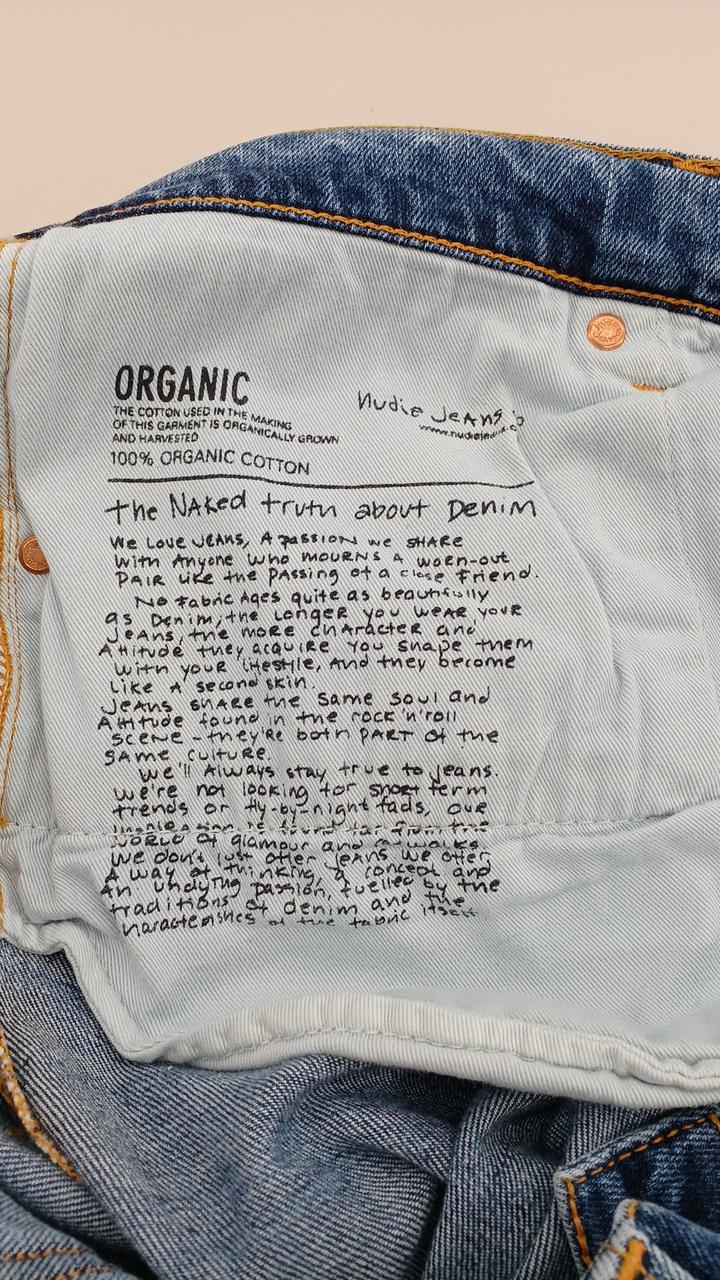 ORGANIC
THE COTTON USED IN THE MAKING
OF THIS GARMENT IS ORGANICALLY GROWN
AND HARVESTED
100% ORGANIC COTTON
Nudie Jeans
the Naked truth about Denim
We Love Jeans, A passion we share
with Anyone who mourns A worn-out
pair like the passing of a close friend.
No fabric Ages quite as beautifully
as Denim, the Longer you wear your
Jeans, the more character and
Attitude they acquire You shape them
with your lifestyle, And they become
like A second skin.
Jeans share the same soul and
Attitude found in the rock'n'roll
scene - they're both part of the
same culture.
We'll Always stay true to jeans.
We're not looking for short term
trends or fly-by-night fads, our
inspiration is found far from the
world of glamour and catwalks.
We don't just offer jeans we offer
A way of thinking, a concept and
An undying passion, fuelled by the
traditions of denim and the
characteristics of the fabric itself